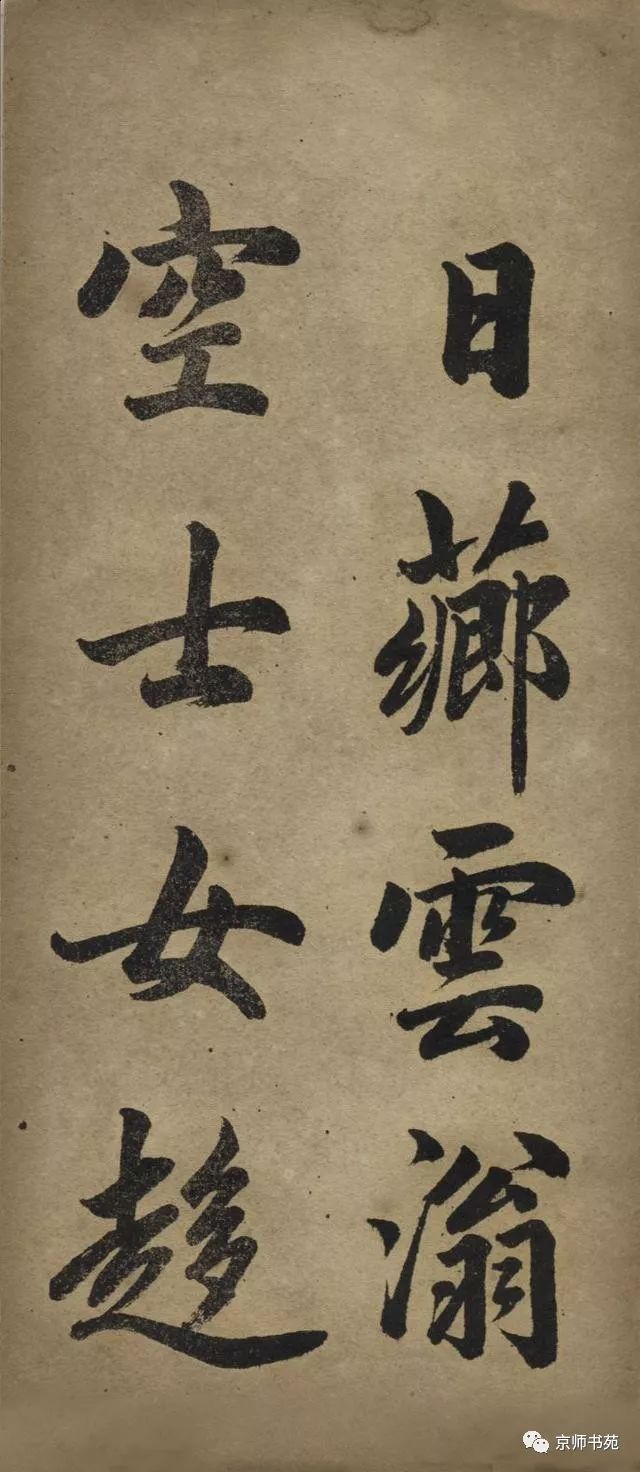 日薌雲滃
空士女趍
京师书苑